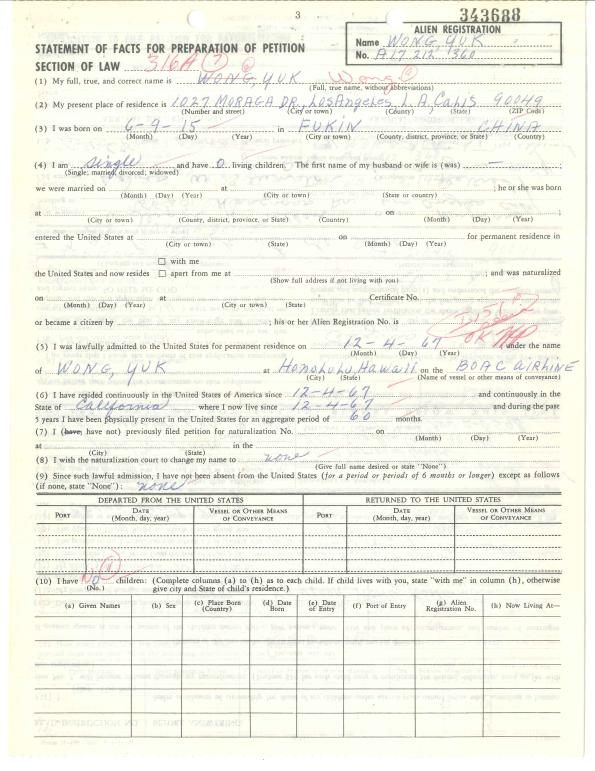 3
343688
ALIEN REGISTRATION
Name WONG, YUK
No. A17 212 360
STATEMENT OF FACTS FOR PREPARATION OF PETITION
SECTION OF LAW 316A 7
(1) My full, true, and correct name is WONG, YUK Wong
(Full, true name, without abbreviations)
(2) My present place of residence is 1027 MORAGA DR., Los Angeles L.A, Calif 90049
(Number and street) (City or town) (County) (State) (ZIP Code)
(3) I was born on 6-9-15 in FUKIN CHINA
(Month) (Day) (Year) (City or town) (County, district, province, or State) (Country)
(4) I am single and have 0 living children. The first name of my husband or wife is (was) —
(Single; married; divorced; widowed)
we were married on at ; he or she was born
(Month) (Day) (Year) (City or town) (State or country)
at on ;
(City or town) (County, district, province, or State) (Country) (Month) (Day) (Year)
entered the United States at on for permanent residence in
(City or town) (State) (Month) (Day) (Year)
with me
the United States and now resides apart from me at ; and was naturalized
(Show full address if not living with you)
on at Certificate No.
(Month) (Day) (Year) (City or town) (State)
or became a citizen by ; his or her Alien Registration No. is
OK
(5) I was lawfully admitted to the United States for permanent residence on 12-4-67 under the name
(Month) (Day) (Year)
of WONG, YUK at Honolulu, Hawaii on the BOAC AIRLINE
(City) (State) (Name of vessel or other means of conveyance)
(6) I have resided continuously in the United States of America since 12-4-67 and continuously in the
State of California where I now live since 12-4-67 and during the past
5 years I have been physically present in the United States for an aggregate period of 60 months.
(7) I (have, have not) previously filed petition for naturalization No. on
(Month) (Day) (Year)
at in the
(City) (State)
(8) I wish the naturalization court to change my name to none
(Give full name desired or state "None")
(9) Since such lawful admission, I have not been absent from the United States (for a period or periods of 6 months or longer) except as follows
(if none, state "None"): none
DEPARTED FROM THE UNITED STATES RETURNED TO THE UNITED STATES
PORT DATE (Month, day, year) VESSEL OR OTHER MEANS OF CONVEYANCE PORT DATE (Month, day, year) VESSEL OR OTHER MEANS OF CONVEYANCE
(10) I have No children: (Complete columns (a) to (h) as to each child. If child lives with you, state "with me" in column (h), otherwise
(No.) give city and State of child's residence.)
(a) Given Names (b) Sex (c) Place Born (Country) (d) Date Born (e) Date of Entry (f) Port of Entry (g) Alien Registration No. (h) Now Living At—